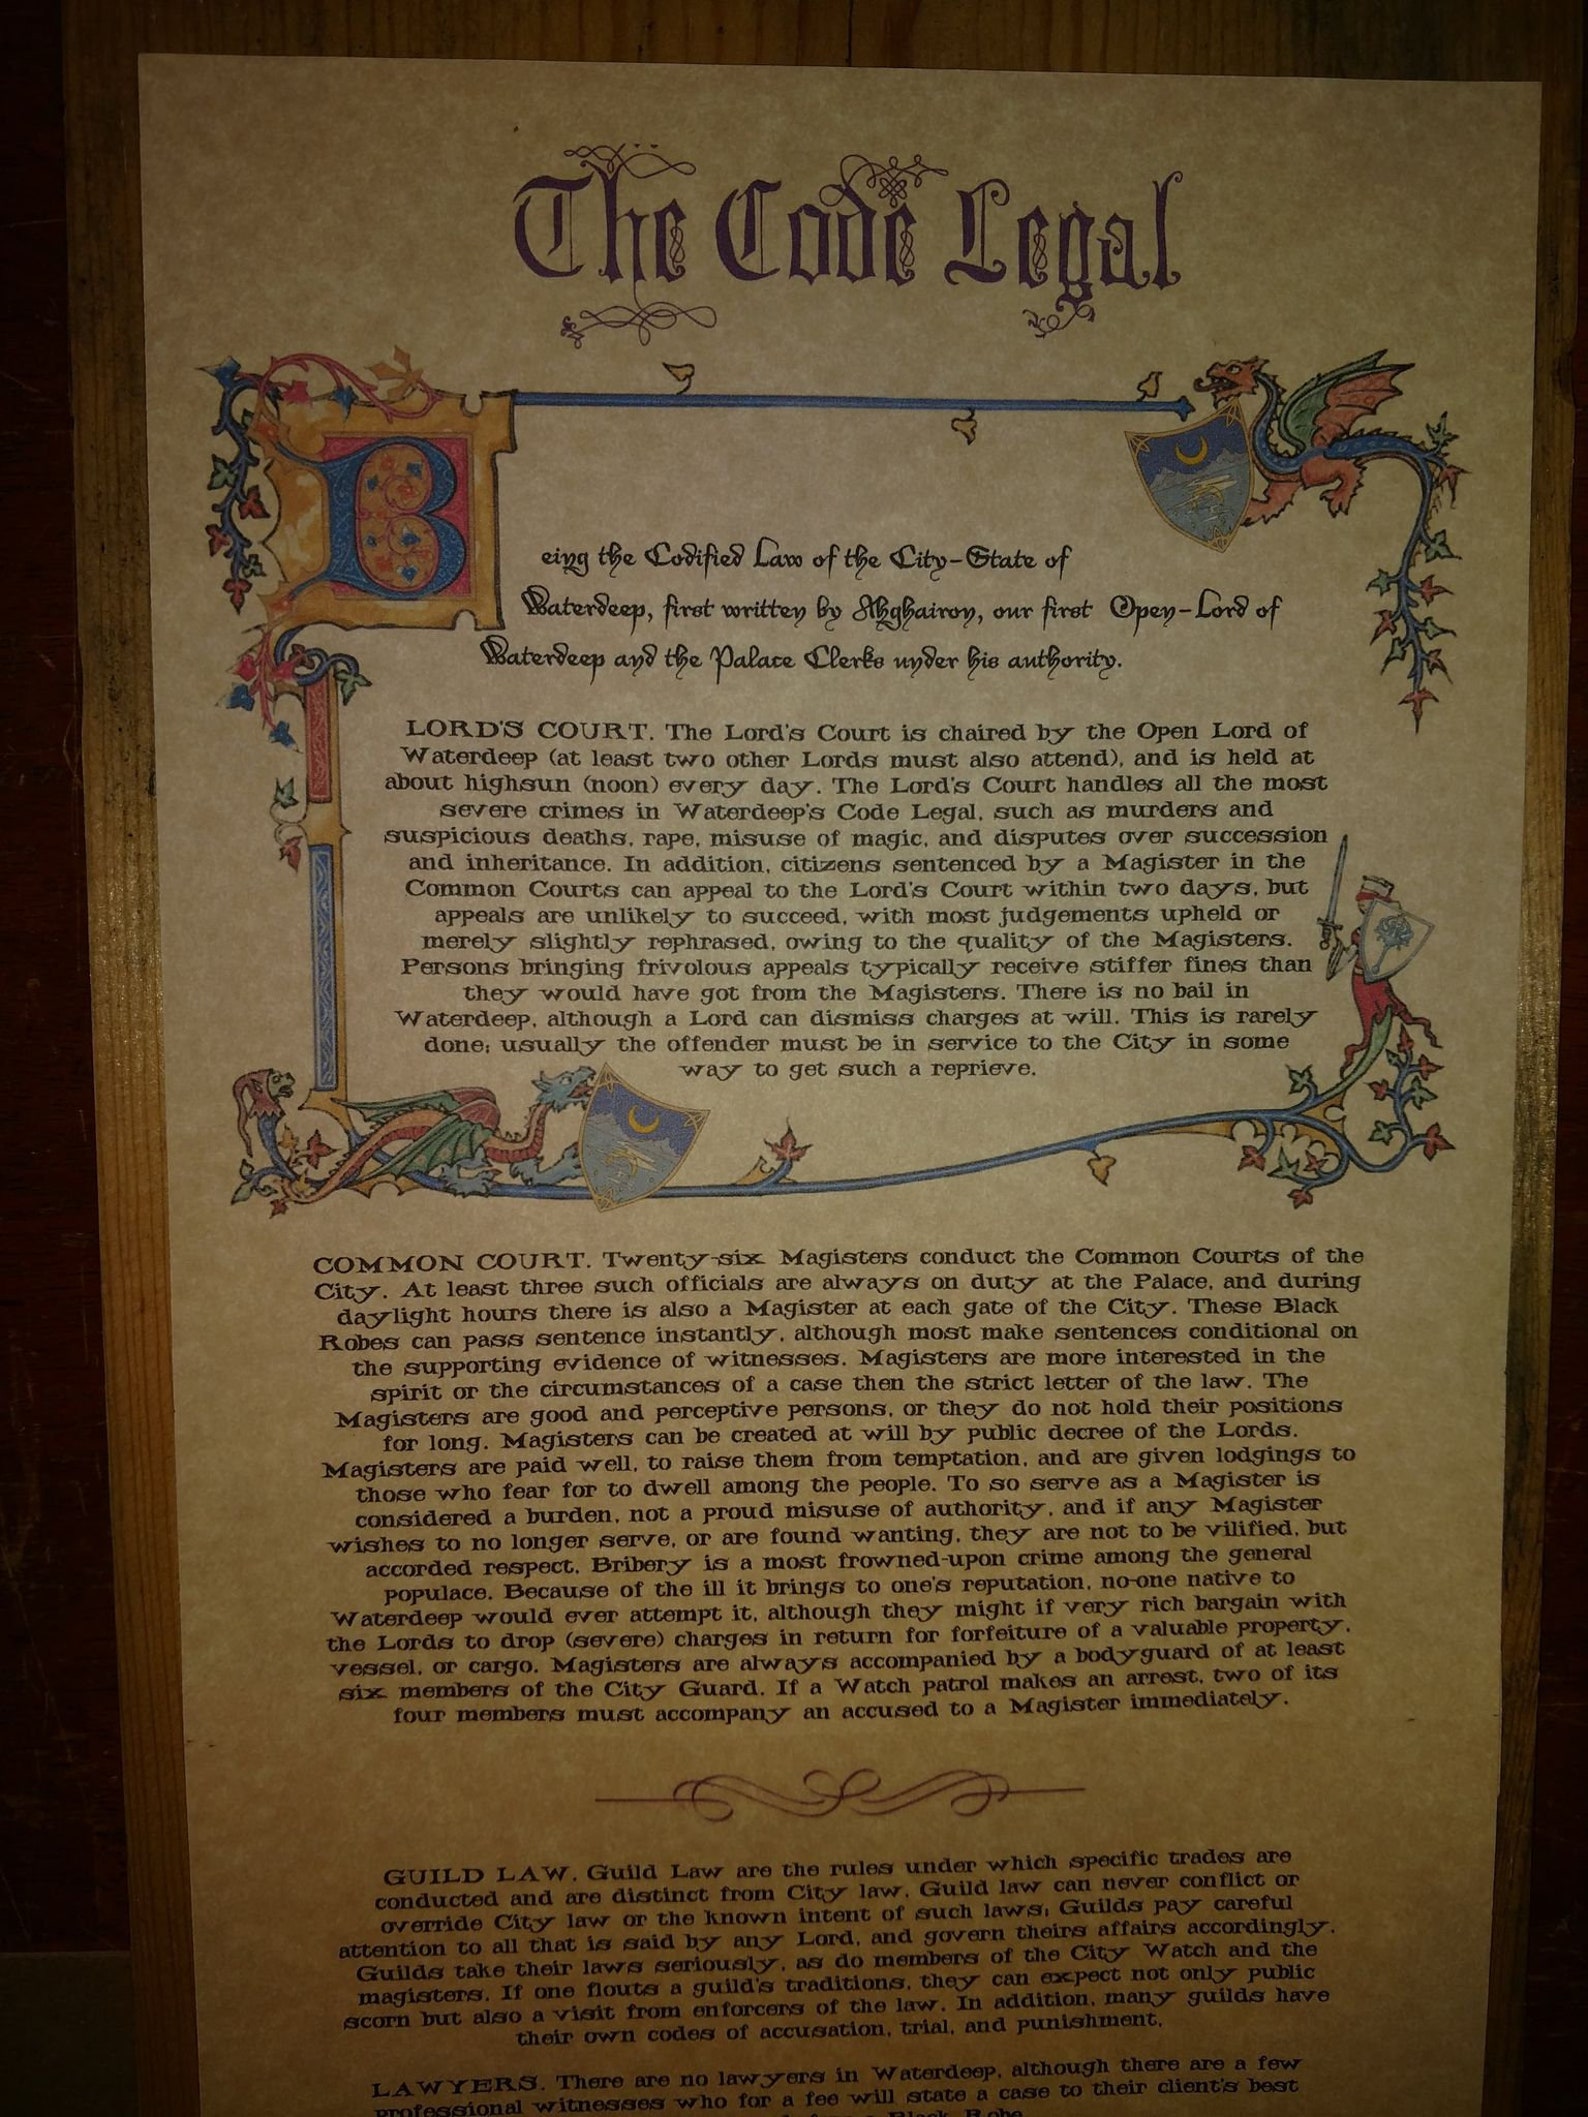 The Code Legal
Being the Codified Law of the City-State of
Waterdeep, first written by Ahghairon, our first Open-Lord of
Waterdeep and the Palace Clerks under his authority.
LORD'S COURT. The Lord's Court is chaired by the Open Lord of
Waterdeep (at least two other Lords must also attend), and is held at
about highsun (noon) every day. The Lord's Court handles all the most
severe crimes in Waterdeep's Code Legal, such as murders and
suspicious deaths, rape, misuse of magic, and disputes over succession
and inheritance. In addition, citizens sentenced by a Magister in the
Common Courts can appeal to the Lord's Court within two days, but
appeals are unlikely to succeed, with most judgements upheld or
merely slightly rephrased, owing to the quality of the Magisters.
Persons bringing frivolous appeals typically receive stiffer fines than
they would have got from the Magisters. There is no bail in
Waterdeep, although a Lord can dismiss charges at will. This is rarely
done; usually the offender must be in service to the City in some
way to get such a reprieve.
COMMON COURT. Twenty-six Magisters conduct the Common Courts of the
City. At least three such officials are always on duty at the Palace, and during
daylight hours there is also a Magister at each gate of the City. These Black
Robes can pass sentence instantly, although most make sentences conditional on
the supporting evidence of witnesses. Magisters are more interested in the
spirit or the circumstances of a case then the strict letter of the law. The
Magisters are good and perceptive persons, or they do not hold their positions
for long. Magisters can be created at will by public decree of the Lords.
Magisters are paid well, to raise them from temptation, and are given lodgings to
those who fear for to dwell among the people. To so serve as a Magister is
considered a burden, not a proud misuse of authority, and if any Magister
wishes to no longer serve, or are found wanting, they are not to be vilified, but
accorded respect. Bribery is a most frowned-upon crime among the general
populace. Because of the ill it brings to one's reputation, no-one native to
Waterdeep would ever attempt it, although they might if very rich bargain with
the Lords to drop (severe) charges in return for forfeiture of a valuable property,
vessel, or cargo. Magisters are always accompanied by a bodyguard of at least
six members of the City Guard. If a Watch patrol makes an arrest, two of its
four members must accompany an accused to a Magister immediately.
GUILD LAW. Guild Law are the rules under which specific trades are
conducted and are distinct from City law. Guild law can never conflict or
override City law or the known intent of such laws; Guilds pay careful
attention to all that is said by any Lord, and govern theirs affairs accordingly.
Guilds take their laws seriously, as do members of the City Watch and the
magisters. If one flouts a guild's traditions, they can expect not only public
scorn but also a visit from enforcers of the law. In addition, many guilds have
their own codes of accusation, trial, and punishment.
LAWYERS. There are no lawyers in Waterdeep, although there are a few
professional witnesses who for a fee will state a case to their client's best
Black Robe